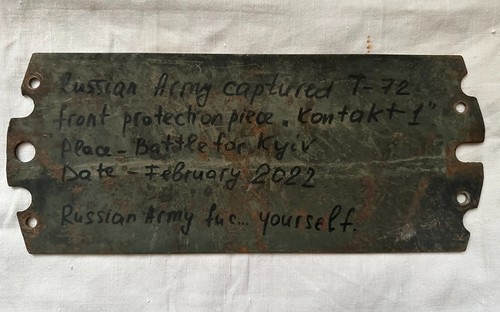 Russian Army captured T-72
front protection piece „Kontakt-1"
Place - Battle for Kyiv
Date - February 2022
Russian Army fuc... yourself.